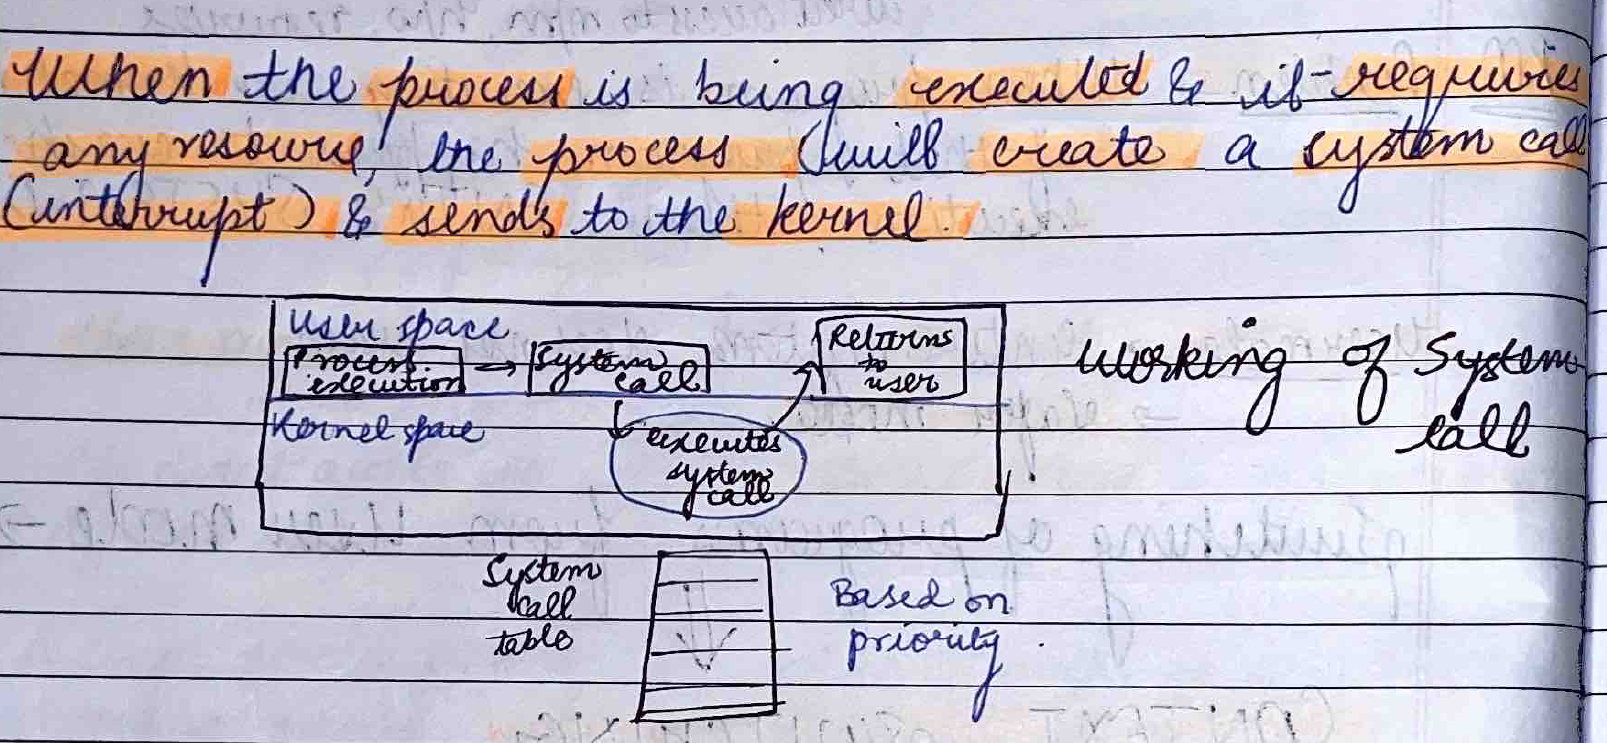 When the process is being executed & it requires
any resource, the process will create a system call
(interrupt) & sends to the kernel.
User space
Process execution → System call
Returns to user
Kernel space
executes system call
Working of System
call
System
call
table
Based on
priority.